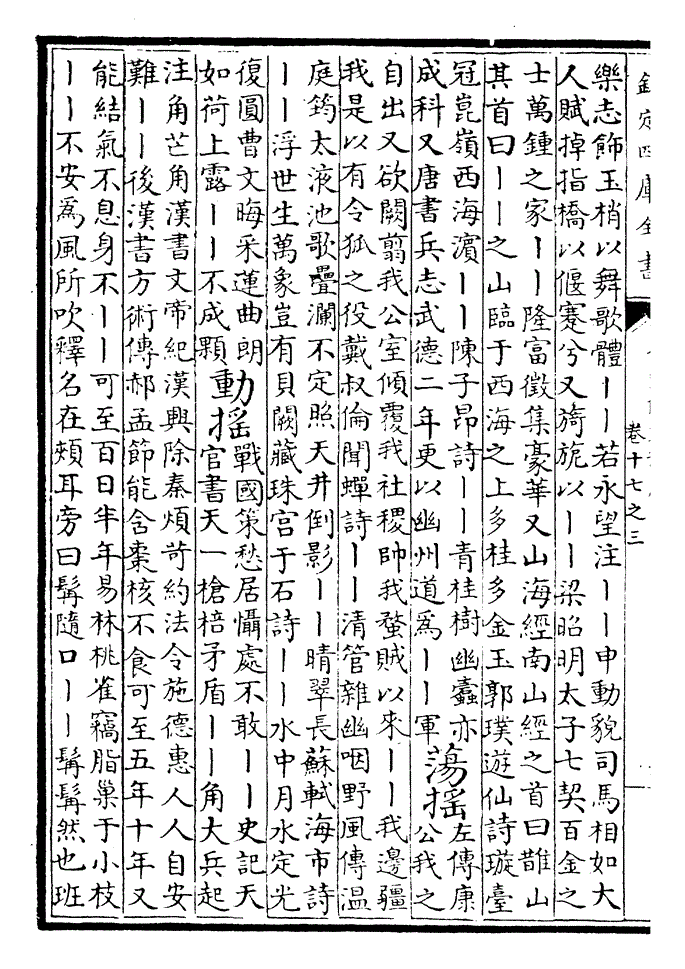 欽定四庫全書
卷十七之三
樂志飾玉梢以舞歌體丨丨若永望注丨丨申動貌司馬相如大
人賦掉指橋以偃蹇兮又旖旎以丨丨梁昭明太子七契百金之
士萬鍾之家丨丨隆富徵集豪華又山海經南山經之首曰䧿山
其首曰丨丨之山臨于西海之上多桂多金玉郭璞遊仙詩璇臺
冠崑嶺西海濱丨丨陳子昂詩丨丨青桂樹幽蠹亦
成科又唐書兵志武德二年更以幽州道爲丨丨軍
蕩揺
左傳康
公我之
自出又欲闕翦我公室傾覆我社稷帥我蝥賊以來丨丨我邊疆
我是以有令狐之役戴叔倫聞蟬詩丨丨清管雜幽咽野風傳温
庭筠太液池歌疊瀾不定照天井倒影丨丨晴翠長蘇軾海市詩
丨丨浮世生萬象豈有貝闕藏珠宮于石詩丨丨水中月水定光
復圓曹文晦采蓮曲朗
如荷上露丨丨不成顆
動揺
戰國策愁居懾處不敢丨丨史記天
官書天一槍棓矛盾丨丨角大兵起
注角芒角漢書文帝紀漢興除秦煩苛約法令施德惠人人自安
難丨丨後漢書方術傳郝孟節能含棗核不食可至五年十年又
能結氣不息身不丨丨可至百日半年易林桃雀竊脂巢于小枝
丨丨不安爲風所吹釋名在頰耳旁曰髯隨口丨丨髯髯然也班